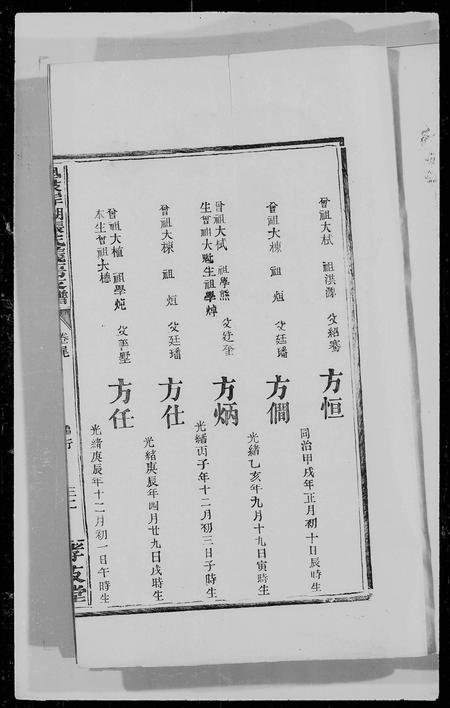 曾祖大栻 祖洪源 父紹騫
方恒
同治甲戌年正月初十日辰時生
曾祖大棟 祖烜 父廷璠
方僩
光緒乙亥年九月十九日寅時生
曾祖大栻 祖學熊
生曾祖大 生祖學焯 父廷奎
方炳
光緒丙子年十二月初三日子時生
曾祖大棟 祖烜 父廷璠
方仕
光緒庚辰年四月廿九日戌時生
曾祖大植 祖學炖 父善墅
本生曾祖大櫶
方任
光緒庚辰年十二月初一日午時生
卷尾
孝友堂